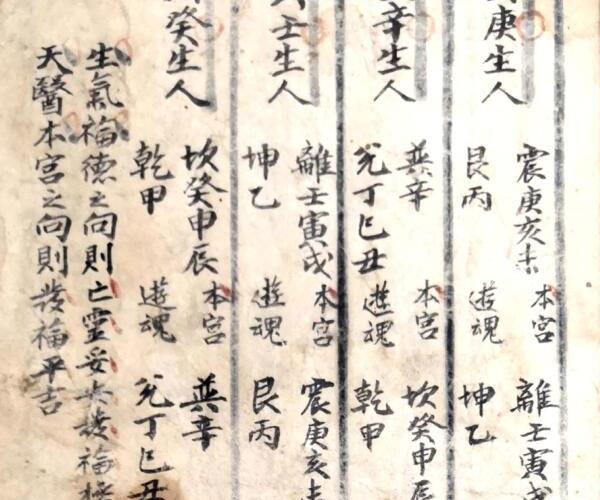 庚生人
震庚亥未 本宮 離壬寅戌
艮丙 遊魂 坤乙
辛生人
巽辛 本宮 坎癸申辰
兌丁巳丑 遊魂 乾甲
壬生人
離壬寅戌 本宮 震庚亥未
坤乙 遊魂 艮丙
癸生人
坎癸申辰 本宮 巽辛
乾甲 遊魂 兌丁巳丑
生氣福德之向則亡靈妥大發福
天醫本宮之向則發福平吉